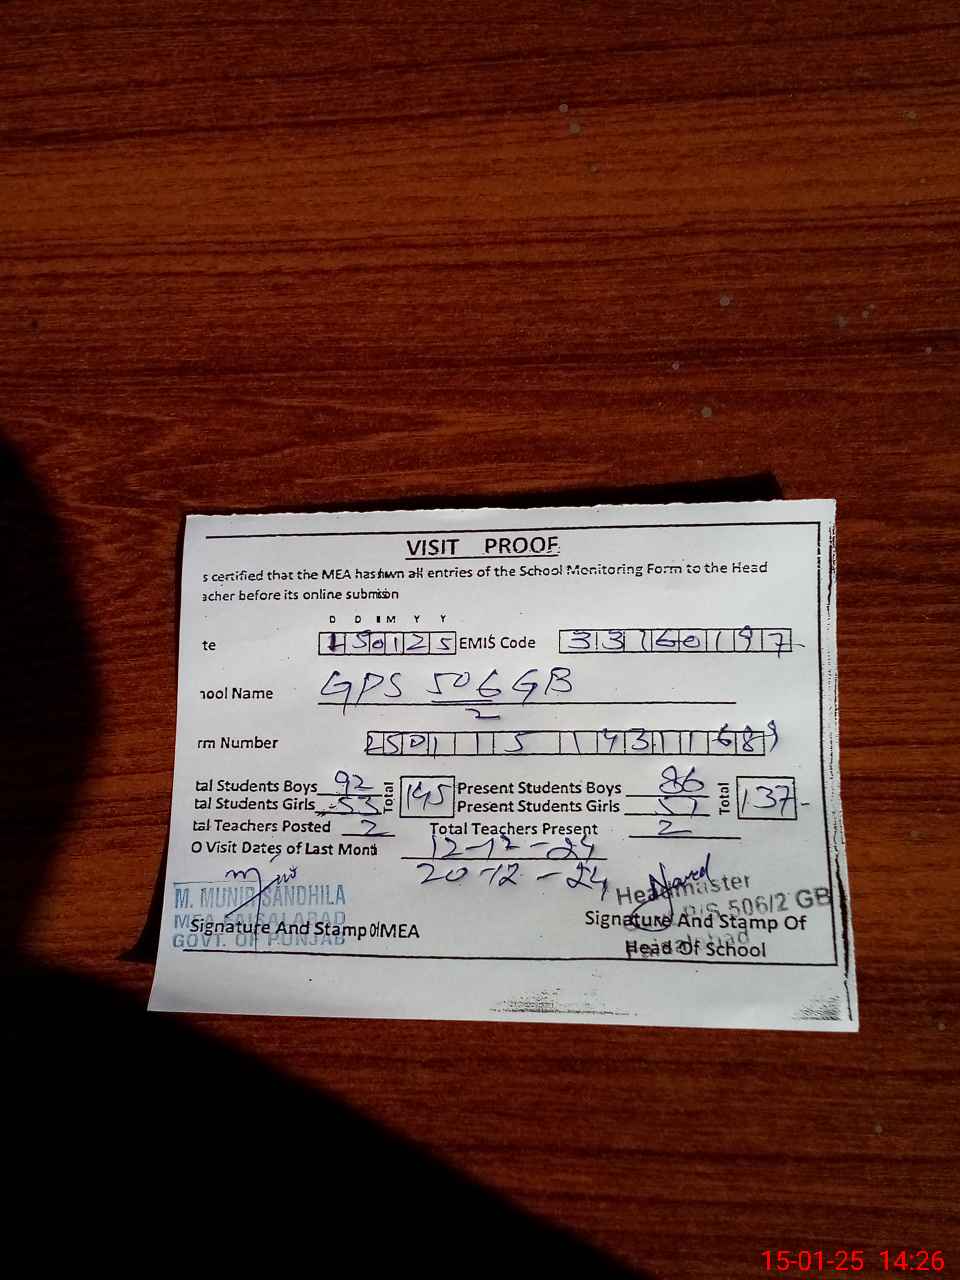 VISIT PROOF
s certified that the MEA has hwn all entries of the School Monitoring Form to the Head
acher before its online submision
D D M M Y Y
te 150125 EMIS Code 33160197
hool Name GPS 506 GB
2
rm Number
tal Students Boys 92 Total 145 Present Students Boys 86 Total 137
tal Students Girls 53 Present Students Girls 51
tal Teachers Posted 2 Total Teachers Present 2
O Visit Dates of Last Mont 12-12-24
20-12-24
M. MUNIR SANDHILA
MEA FAISALABAD
GOVT. OF PUNJAB
Signature And Stamp Of MEA
Headmaster
506/2 GB
Signature And Stamp Of
Head Of School
15-01-25 14:26